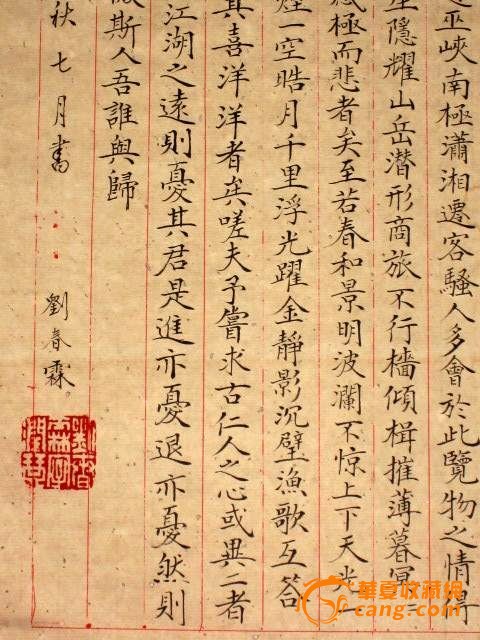 巫峽南極瀟湘遷客騷人多會於此覽物之情得
星隱耀山岳潛形商旅不行檣傾楫摧薄暮冥
感極而悲者矣至若春和景明波瀾不惊上下天光
煙一空皓月千里浮光躍金靜影沉璧漁歌互答
其喜洋洋者矣嗟夫予嘗求古仁人之心或異二者
江湖之遠則憂其君是進亦憂退亦憂然則
微斯人吾誰與歸
秋七月書
劉春霖
華夏收藏網
cang.com